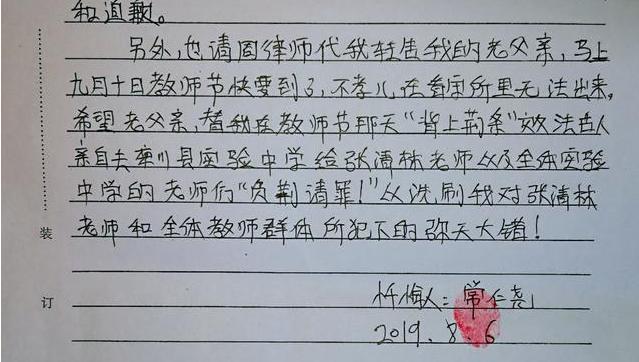 和道歉。
另外，也请周律师代我转告我的老父亲，马上
九月十日教师节快要到了，不孝儿在看守所里无法出来，
希望老父亲，替我在教师节那天"背上荆条"效法古人
亲自去栾川县实验中学给张清林老师以及全体实验
中学的老师们"负荆请罪！"以洗刷我对张清林
老师和全体教师群体所犯下的弥天大错！
装
订
忏悔人：常仁尧
2019.8.6